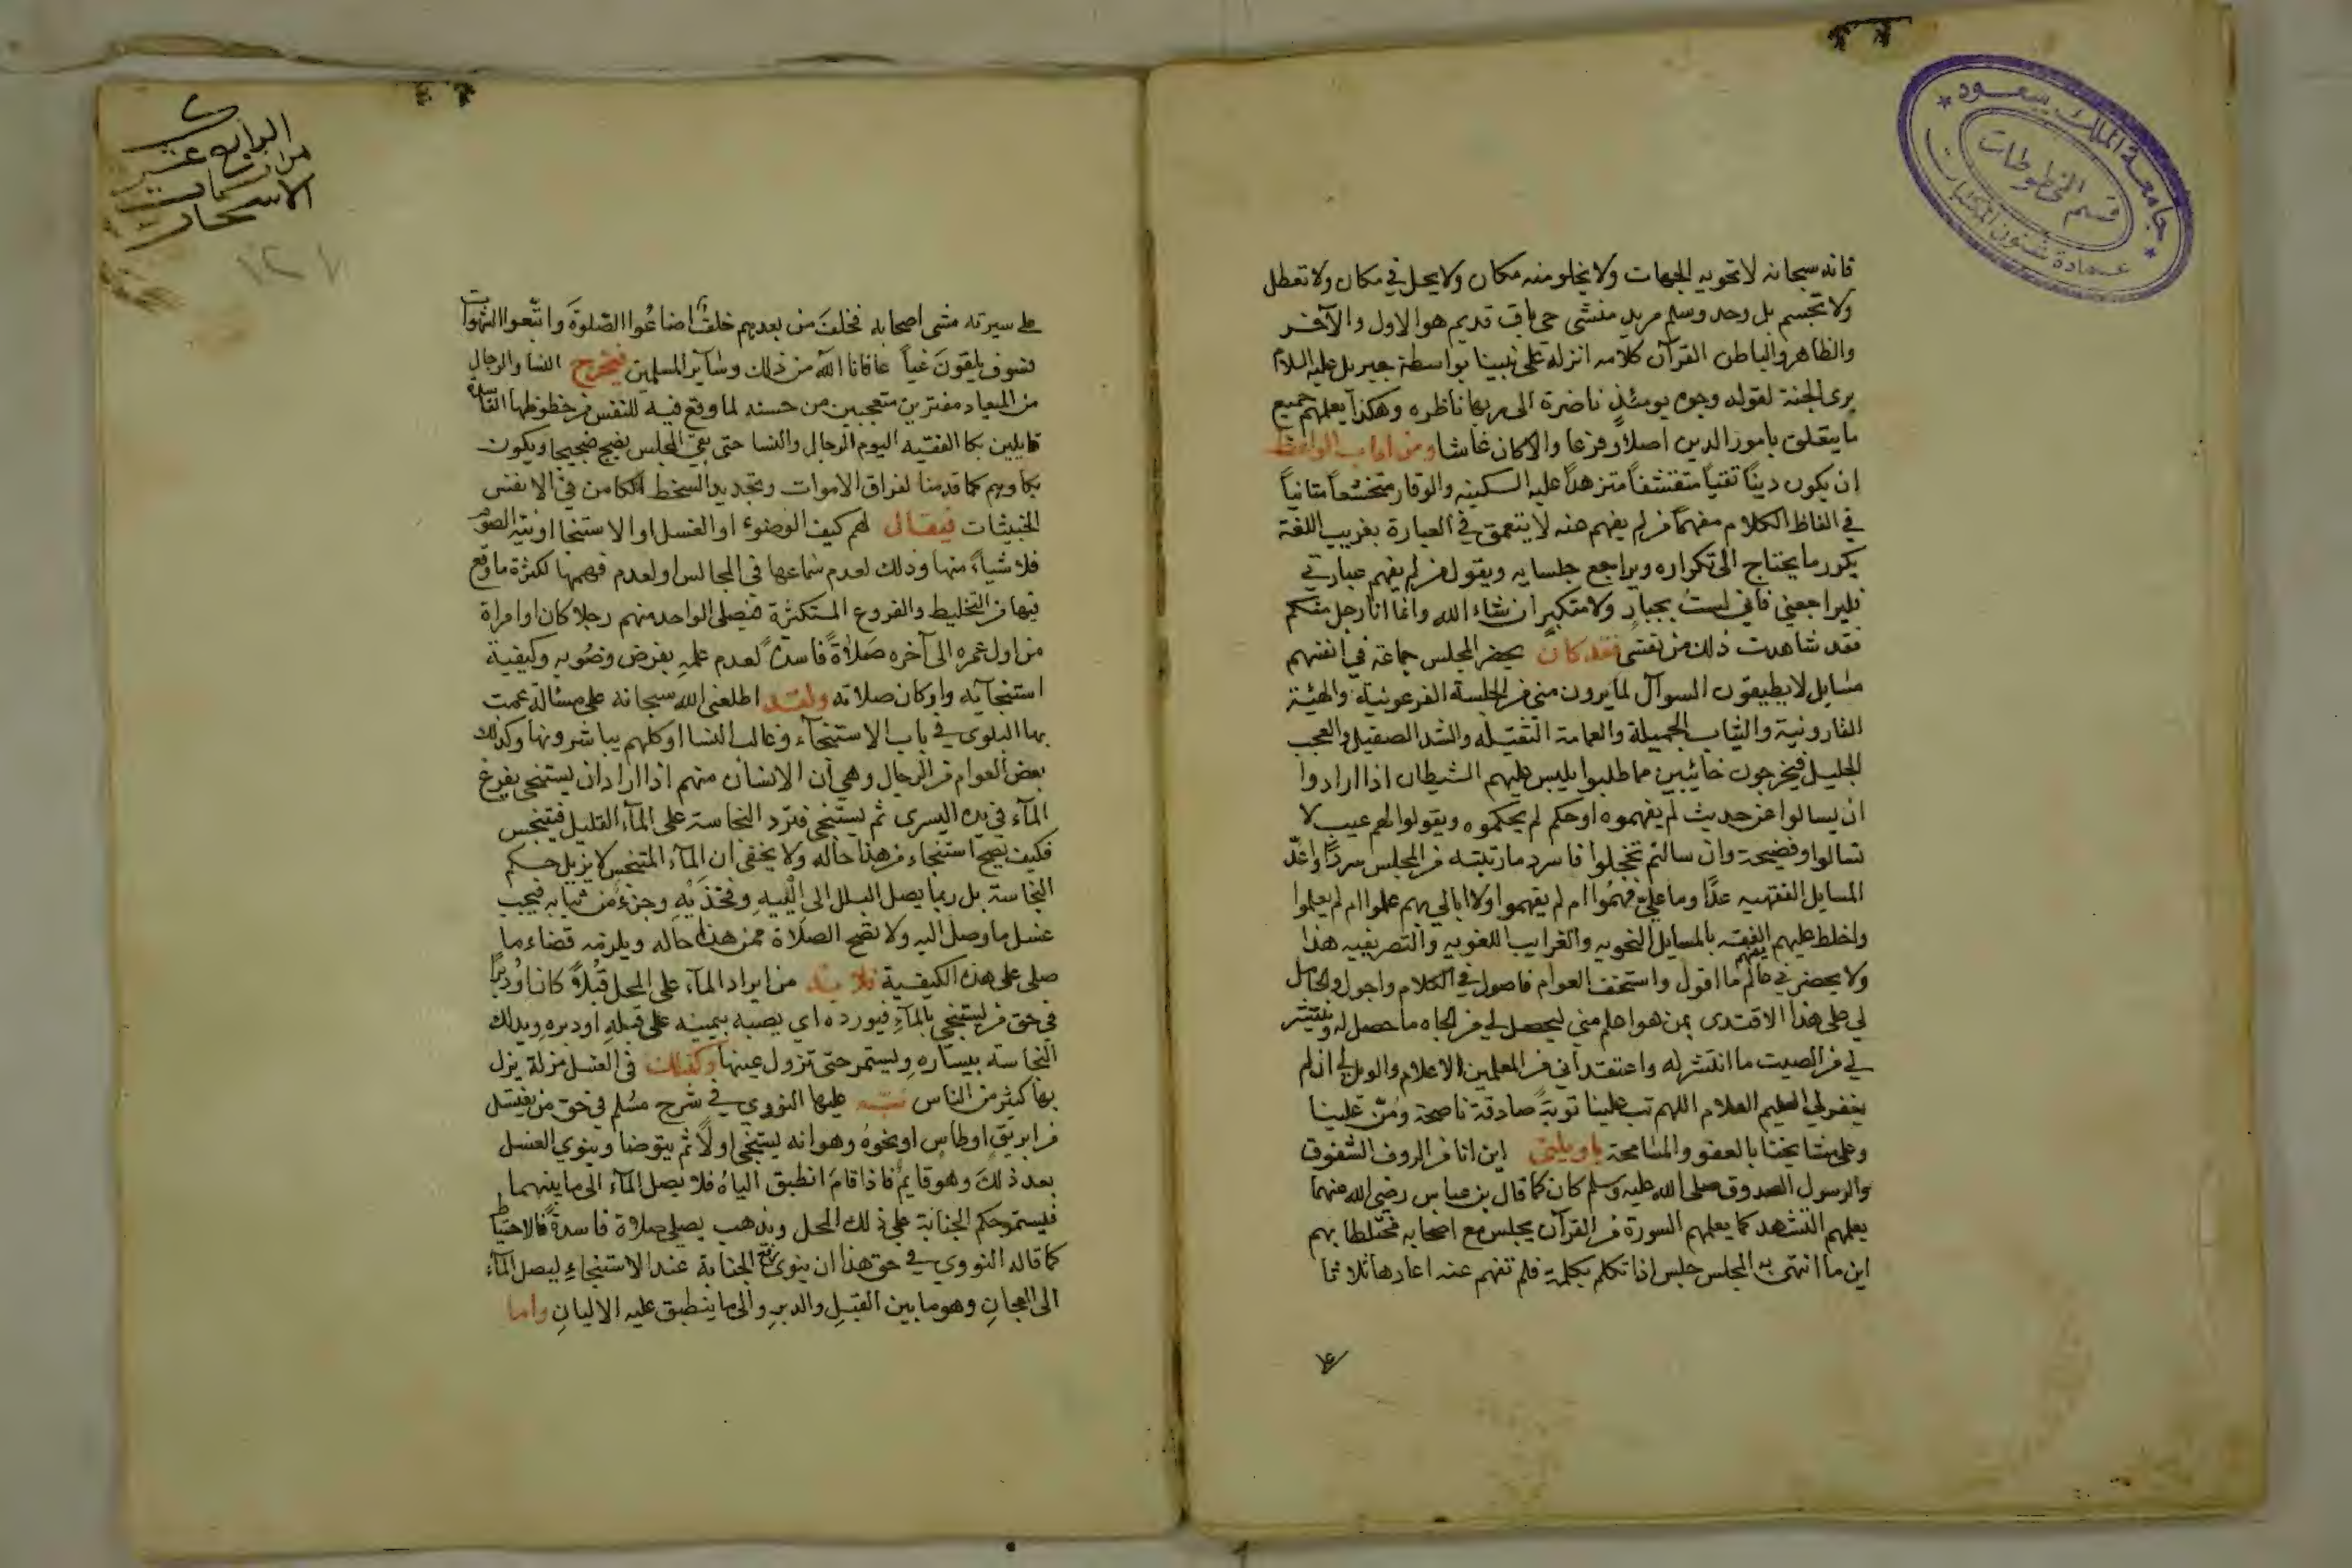 جامعة الملك سعود
قسم المخطوطات
عمادة شئون المكتبات
فانه سبحانه لا تحويه الجهات ولا يخلو منه مكان ولا يحل في مكان ولا تعطل
ولا تجسم بل وحد وسلم مريد منشى حي باق قديم هو الاول والآخر
والظاهر والباطن القرآن كلامه انزله على نبينا بواسطة جبريل عليه السلام
يرى الجنة لقوله وجوه يومئذ ناضرة الى ربها ناظره وهكذا يعلمهم جميع
ما يتعلق بامور الدين اصلاً وفرعا والا كان غاشا ومن اداب الواعظ
ان يكون ديناً تقياً متقشفاً متزهداً عليه السكينه والوقار متخشعاً متانياً
في الفاظ الكلام مفهماً من لم يفهم عنه لا يتعمق في العبارة بغريب اللغة
يكرر ما يحتاج الى تكراره ويراجع جلسايه ويقول من لم يفهم عبارتي
فليراجعني فاني لستُ بجبارٍ ولا متكبر ان شاء الله وانما انا رجل منكم
فقد شاهدت ذلك من نفسى فقد كان يحضر المجلس جماعة في انفسهم
مسايل لا يطيقون السوآل لما يرون منى من الجلسة الفرعونية والهيئة
القارونية والثياب الجميلة والعمامة الثقيله والشد الصقيل والعجب
الجليل فيخرجون خائبين مما طلبوا يلبس عليهم الشيطان اذا ارادوا
ان يسالوا عن حديث لم يفهموه او حكم لم يحكموه ويقولوا لهم عيب لا
تسالوا وفضيحة وان سالتم تخجلوا فاسرد ما رتبته من المجلس سرداً واعدّ
المسايل الفقهيه عدًّا وما عليّ فهمُوا ام لم يفهموا ولا ابالي بهم علموا ام لم يعلموا
واخلط عليهم الفقه بالمسايل النحويه والغرايب اللغويه والتصريفيه هذا
ولا يحضرني عالم يفهم ما اقول واستخف العوام فاصول في الكلام واجول والحامل
لي على هذا الاقتدى بمن هو اعلم مني ليحصل لي من الجاه ما حصل له وينتشر
لي من الصيت ما انتشر له واعتقد اني من المعلمين الاعلام والويل لي ان لم
يغفر لي العليم العلام اللهم تب علينا توبةً صادقة ناصحة ومُنّ علينا
وعلى مشايخنا بالعفو والمسامحة ياويلتى اين انا من الروف الشفوق
والرسول الصدوق صلى الله عليه وسلم كان كما قال بن عباس رضي الله عنهما
يعلمهم التشهد كما يعلمهم السورة من القرآن يجلس مع اصحابه مختلطا بهم
اين ما انتهى به المجلس جلس اذا تكلم بكلمة فلم تفهم عنه اعادها ثلاثا
الرابع عشر
من نسمات
الاسحار
١٢١
على سيرته مشى اصحابه فخلفَ من بعدهم خلفٌ اضاعُوا الصّلوةَ واتّبعوا الشهوات
فسوف يلقونَ غياً عافانا الله من ذلك وسآئر المسلمين فيخرج النسا والرجال
من الميعاد مفترين متعجبين من حسنه لما وقع فيه للنفس من حظوظها الفاسدة
قايلين بكا الفقيه اليوم الرجال والنسا حتى بقي المجلس يضج ضجيجا ويكون
بكاوهم كما قدمنا لفراق الاموات وتجديد السخط الكامن في الانفس
الخبيثات فيقال لهم كيف الوضوء او الغسل او الاستنجا او نية الصوم
فلا شياءً منها وذلك لعدم سماعها في المجالس او لعدم فهمها لكثرة ما وقع
فيها من التخليط والفروع المستكثرة فيصلى الواحد منهم رجلا كان او امراة
من اول عمره الى آخره صَلاةً فاسدةً لعدم علمه بفرض وضُوءه وكيفية
استنجآيه واركان صلاته ولقد اطلعني الله سبحانه على مسئالة عمت
بها البلوى في باب الاستنجآء وغالب النسا اوكلهم يباشرونها وكذلك
بعض العوام من الرجال وهي ان الانسان منهم اذا اراد ان يستنجي يفرغ
المآء في يده اليسرى ثم يستنجي فترد النجاسة على المآء القليل فيتنجس
فكيف يصح استنجاء من هذا حاله ولا يخفى ان المآء المتنجس لا يزيل حكم
النجاسة بل ربما يصل البلل الى الْيَيهِ وفخذَيْهِ وجزءٌ من ثيابه فيجب
غسل ما وصل اليه ولا تصح الصلاة ممن هذا حاله ويلزمه قضاء ما
صلى على هذه الكيفية فلا بد من ايراد المآء على المحل قُبُلاً كان او دبرًا
في حق من يستنجي بالمآءِ فيورده اي يصبه بيمينه على قبله او دبرهِ ويدلك
النجاسة بيسارهِ ويستمر حتى تزول عينها وكذلك فى الغسل مزلة يزل
بها كثير من الناس نبه عليها النووي في شرح مسُلم في حق من يغتسل
من ابريقٍ او طاسٍ او نحوهُ وهو انه يستنجي اولاً ثم يتوضا وينوي الغسل
بعد ذلكَ وهو قايمٌ فاذا قامَ انطبق الياهُ فلا يصل المآء الى ما بينهما
فيستمر حكم الجنابة على ذلك المحل ويذهب يصلي صلاة فاسدةً فالاحتياط
كما قاله النووي في حق هذا ان ينوي رفع الجنابة عند الاستنجاءِ ليصل المآء
الى العجانِ وهو ما بين القبلِ والدبرِ والى ما ينطبق عليه الاليانِ واما